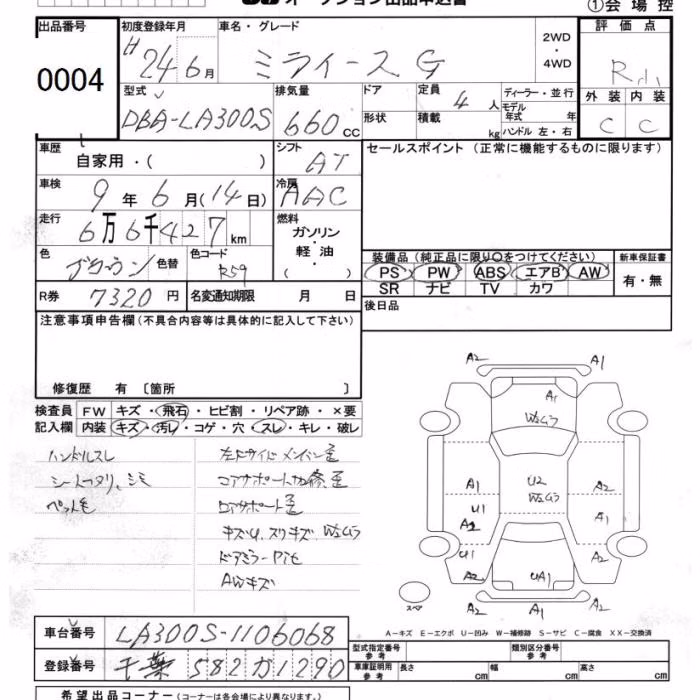 オークション出品申込書
①会場控
出品番号
0004
初度登録年月
H24年6月
車名・グレード
ミライース G
2WD
・
4WD
評価点
型式
DBA-LA300S
排気量
660cc
ドア
形状
定員
4人
積載
kg
ディーラー・並行
モデル年式 年
ハンドル 左・右
外装 内装
C C
車歴
自家用・( )
シフト
AT
セールスポイント (正常に機能するものに限ります)
車検
9年6月(14日)
冷房
AAC
走行
6万6千427km
燃料
ガソリン
・
軽油
・
( )
色
ブラウン
色替
色コード
R59
装備品 (純正品に限り○をつけてください)
新車保証書
PS PW ABS エアB AW
有・無
SR ナビ TV カワ
R券
7320円
名変通知期限 月 日
後日品
注意事項申告欄 (不具合内容等は具体的に記入して下さい)
修復歴 有 〔箇所 〕
検査員記入欄
FW キズ・飛石・ヒビ割・リペア跡・×要
内装 キズ・汚レ・コゲ・穴・スレ・キレ・破レ
ハンドルスレ
シートスタリ、シミ
ペット毛
左サイドメンバー歪
コアサポート加修、歪
ロアサポート歪
キズU、スリキズ
ドアミラー
AWキズ
A2 A1
A1
U2
A1
U1
A2
U1
A2
A2
A1
A2
UA1
A2
A2 A1
スペア
A−キズ E−エクボ U−凹み W−補修跡 S−サビ C−腐食 XX−交換済
車台番号
LA300S-1106068
登録番号
千葉 582 か 1290
型式指定番号
参考
類別区分番号
参考
車庫証明用
参考
長さ cm
幅 cm
高さ cm
希望出品コーナー (コーナーは各会場により異なります。)